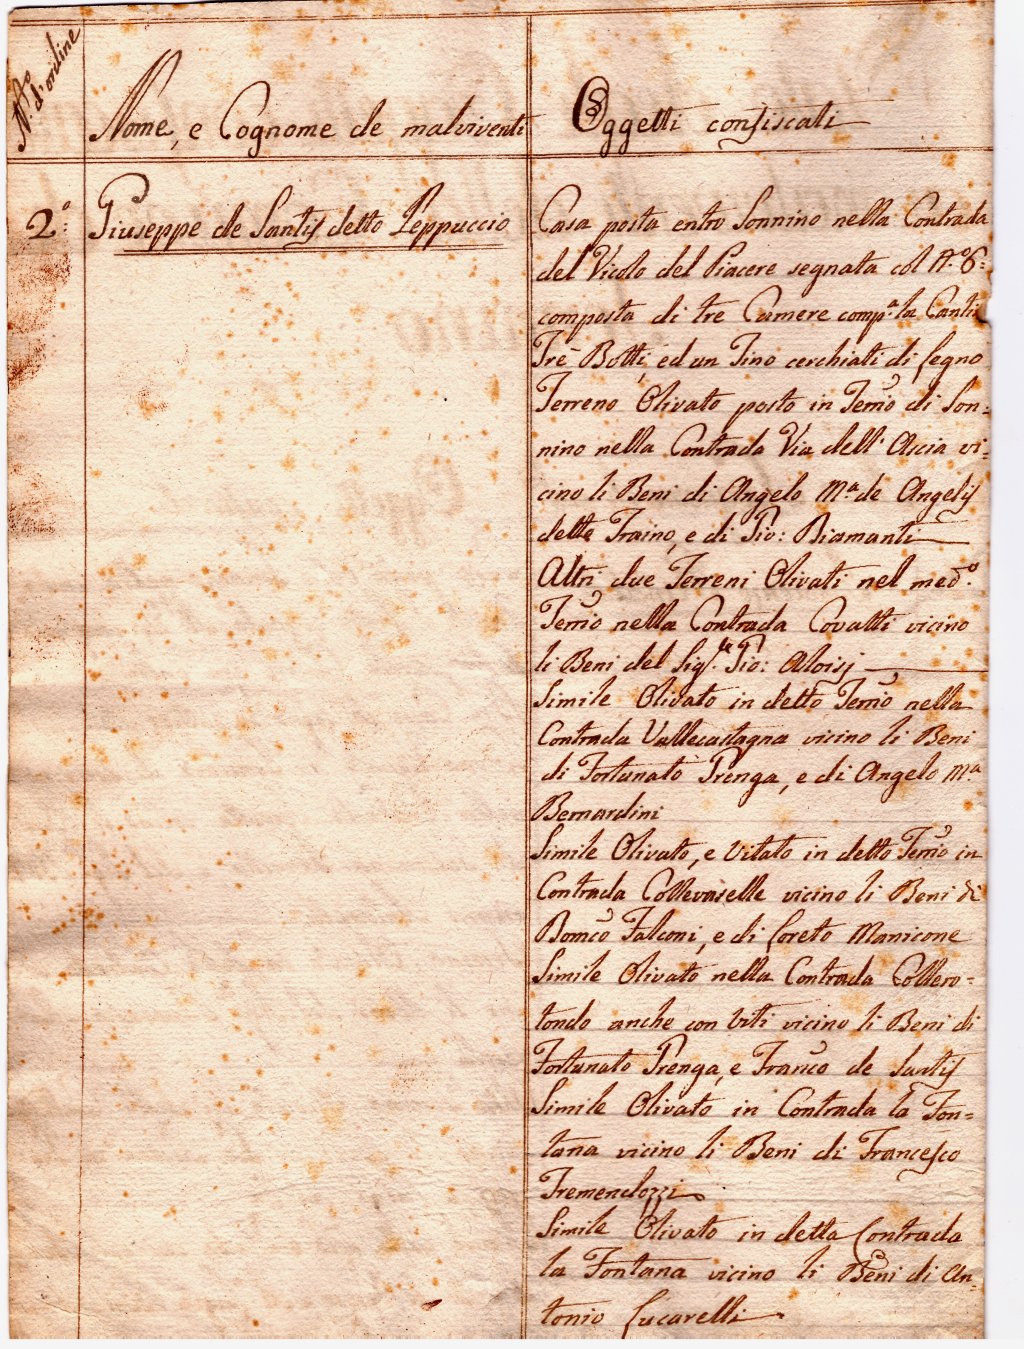 N.to d'ordine
Nome, e Cognome de malviventi
Oggetti confiscati
2.°
Giuseppe de Santis detto Peppuccio
Casa posta entro Sonnino nella Contrada
del Vicolo del Piacere segnata col N.° 6:
composta di tre Camere comp.a la Canti
Tre Botti, ed un Tino cerchiati di legno
Terreno Olivato posto in Terrio di Son=
nino nella Contrada Via dell' Ascia vi=
cino li Beni di Angelo M.a de Angelis
detto Traino, e di Gio: Diamanti
Altri due Terreni Olivati nel med.°
Terrio nella Contrada Covatti vicino
li Beni del Sig.re Gio: Aloisj
Simile Olivato in detto Terrio nella
Contrada Vallecastagna vicino li Beni
di Fortunato Grenga, e di Angelo M.a
Bernardini
Simile Olivato, e Vitato in detto Terrio in
Contrada vicino li Beni di
Domco Falconi, e di Loreto Manicone
Simile Olivato nella Contrada Collero=
tondo anche con Viti vicino li Beni di
Fortunato Grenga, e Franco de Santis
Simile Olivato in Contrada la Fon=
tana vicino li Beni di Francesco
Tremendozzi
Simile Olivato in detta Contrada
la Fontana vicino li Beni di An=
tonio Lucarelli